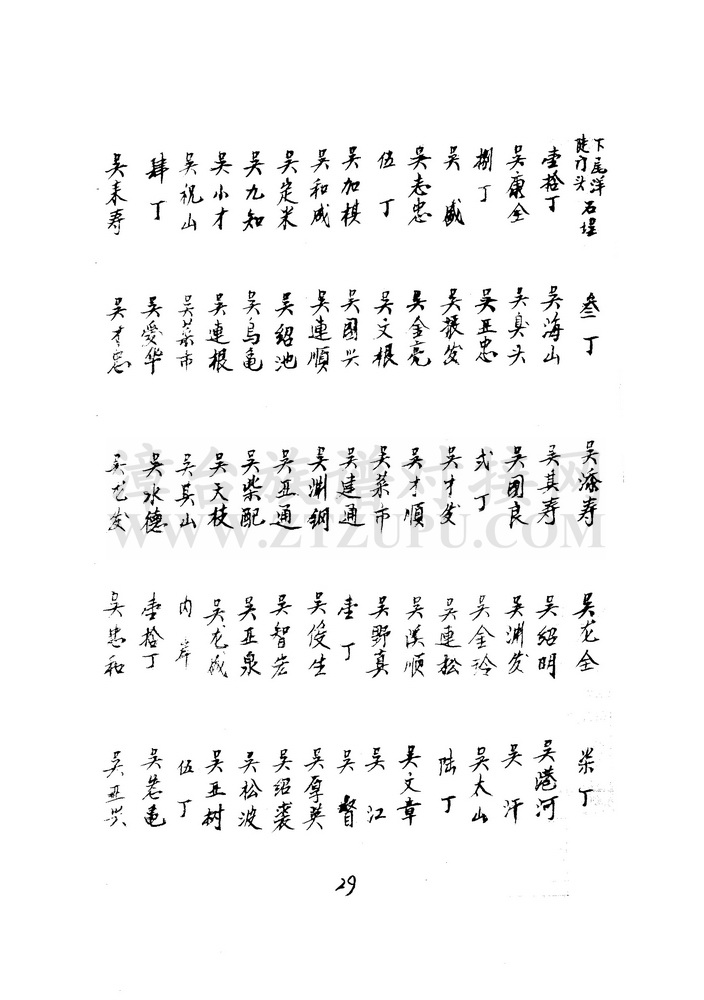 下尾洋 石埕
陡门头
壹拾丁
吴康全
捌丁
吴盛
吴志忠
伍丁
吴加棋
吴和成
吴定米
吴九知
吴小才
吴祝山
肆丁
吴来寿
叁丁
吴海山
吴臭头
吴亚忠
吴振发
吴金亮
吴文根
吴國兴
吴連順
吴紹池
吴乌龟
吴連根
吴菜市
吴愛华
吴才忠
吴添寿
吴其寿
吴国良
弍丁
吴才发
吴才順
吴菜市
吴建通
吴渊钢
吴亚通
吴柴配
吴天枝
吴其山
吴水德
吴龙发
吴龙全
吴紹明
吴渊发
吴金玲
吴連松
吴溪順
吴野真
壹丁
吴俊生
吴智宏
吴亚泉
吴龙成
内岸
壹拾丁
吴忠和
柒丁
吴港河
吴汗
吴大山
陆丁
吴文章
吴江
吴督
吴厚英
吴绍裘
吴松波
吴亚树
伍丁
吴老龟
吴亚兴
29
漳台族谱对接网
WWW.ZTZUPU.COM